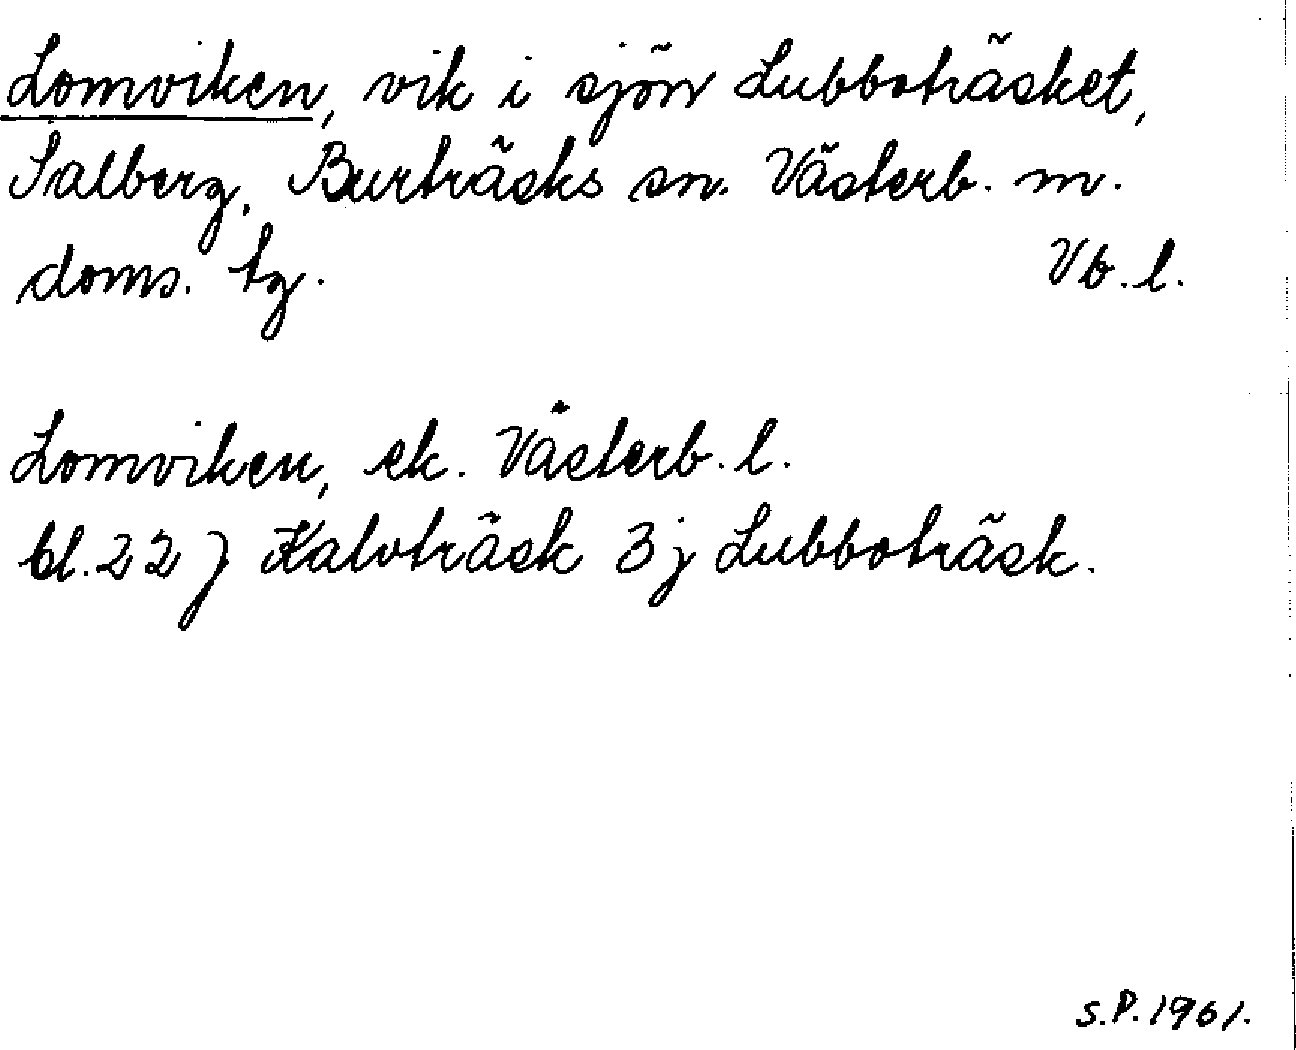 Lomviken, vik i sjön Lubboträsket,
Salberg, Burträsks sn. Västerb. m.
doms. tg. Vb. l.
Lomviken, ek. Västerb. l.
bl. 22 J Kalvträsk 3j Lubboträsk.
S.P. 1961.